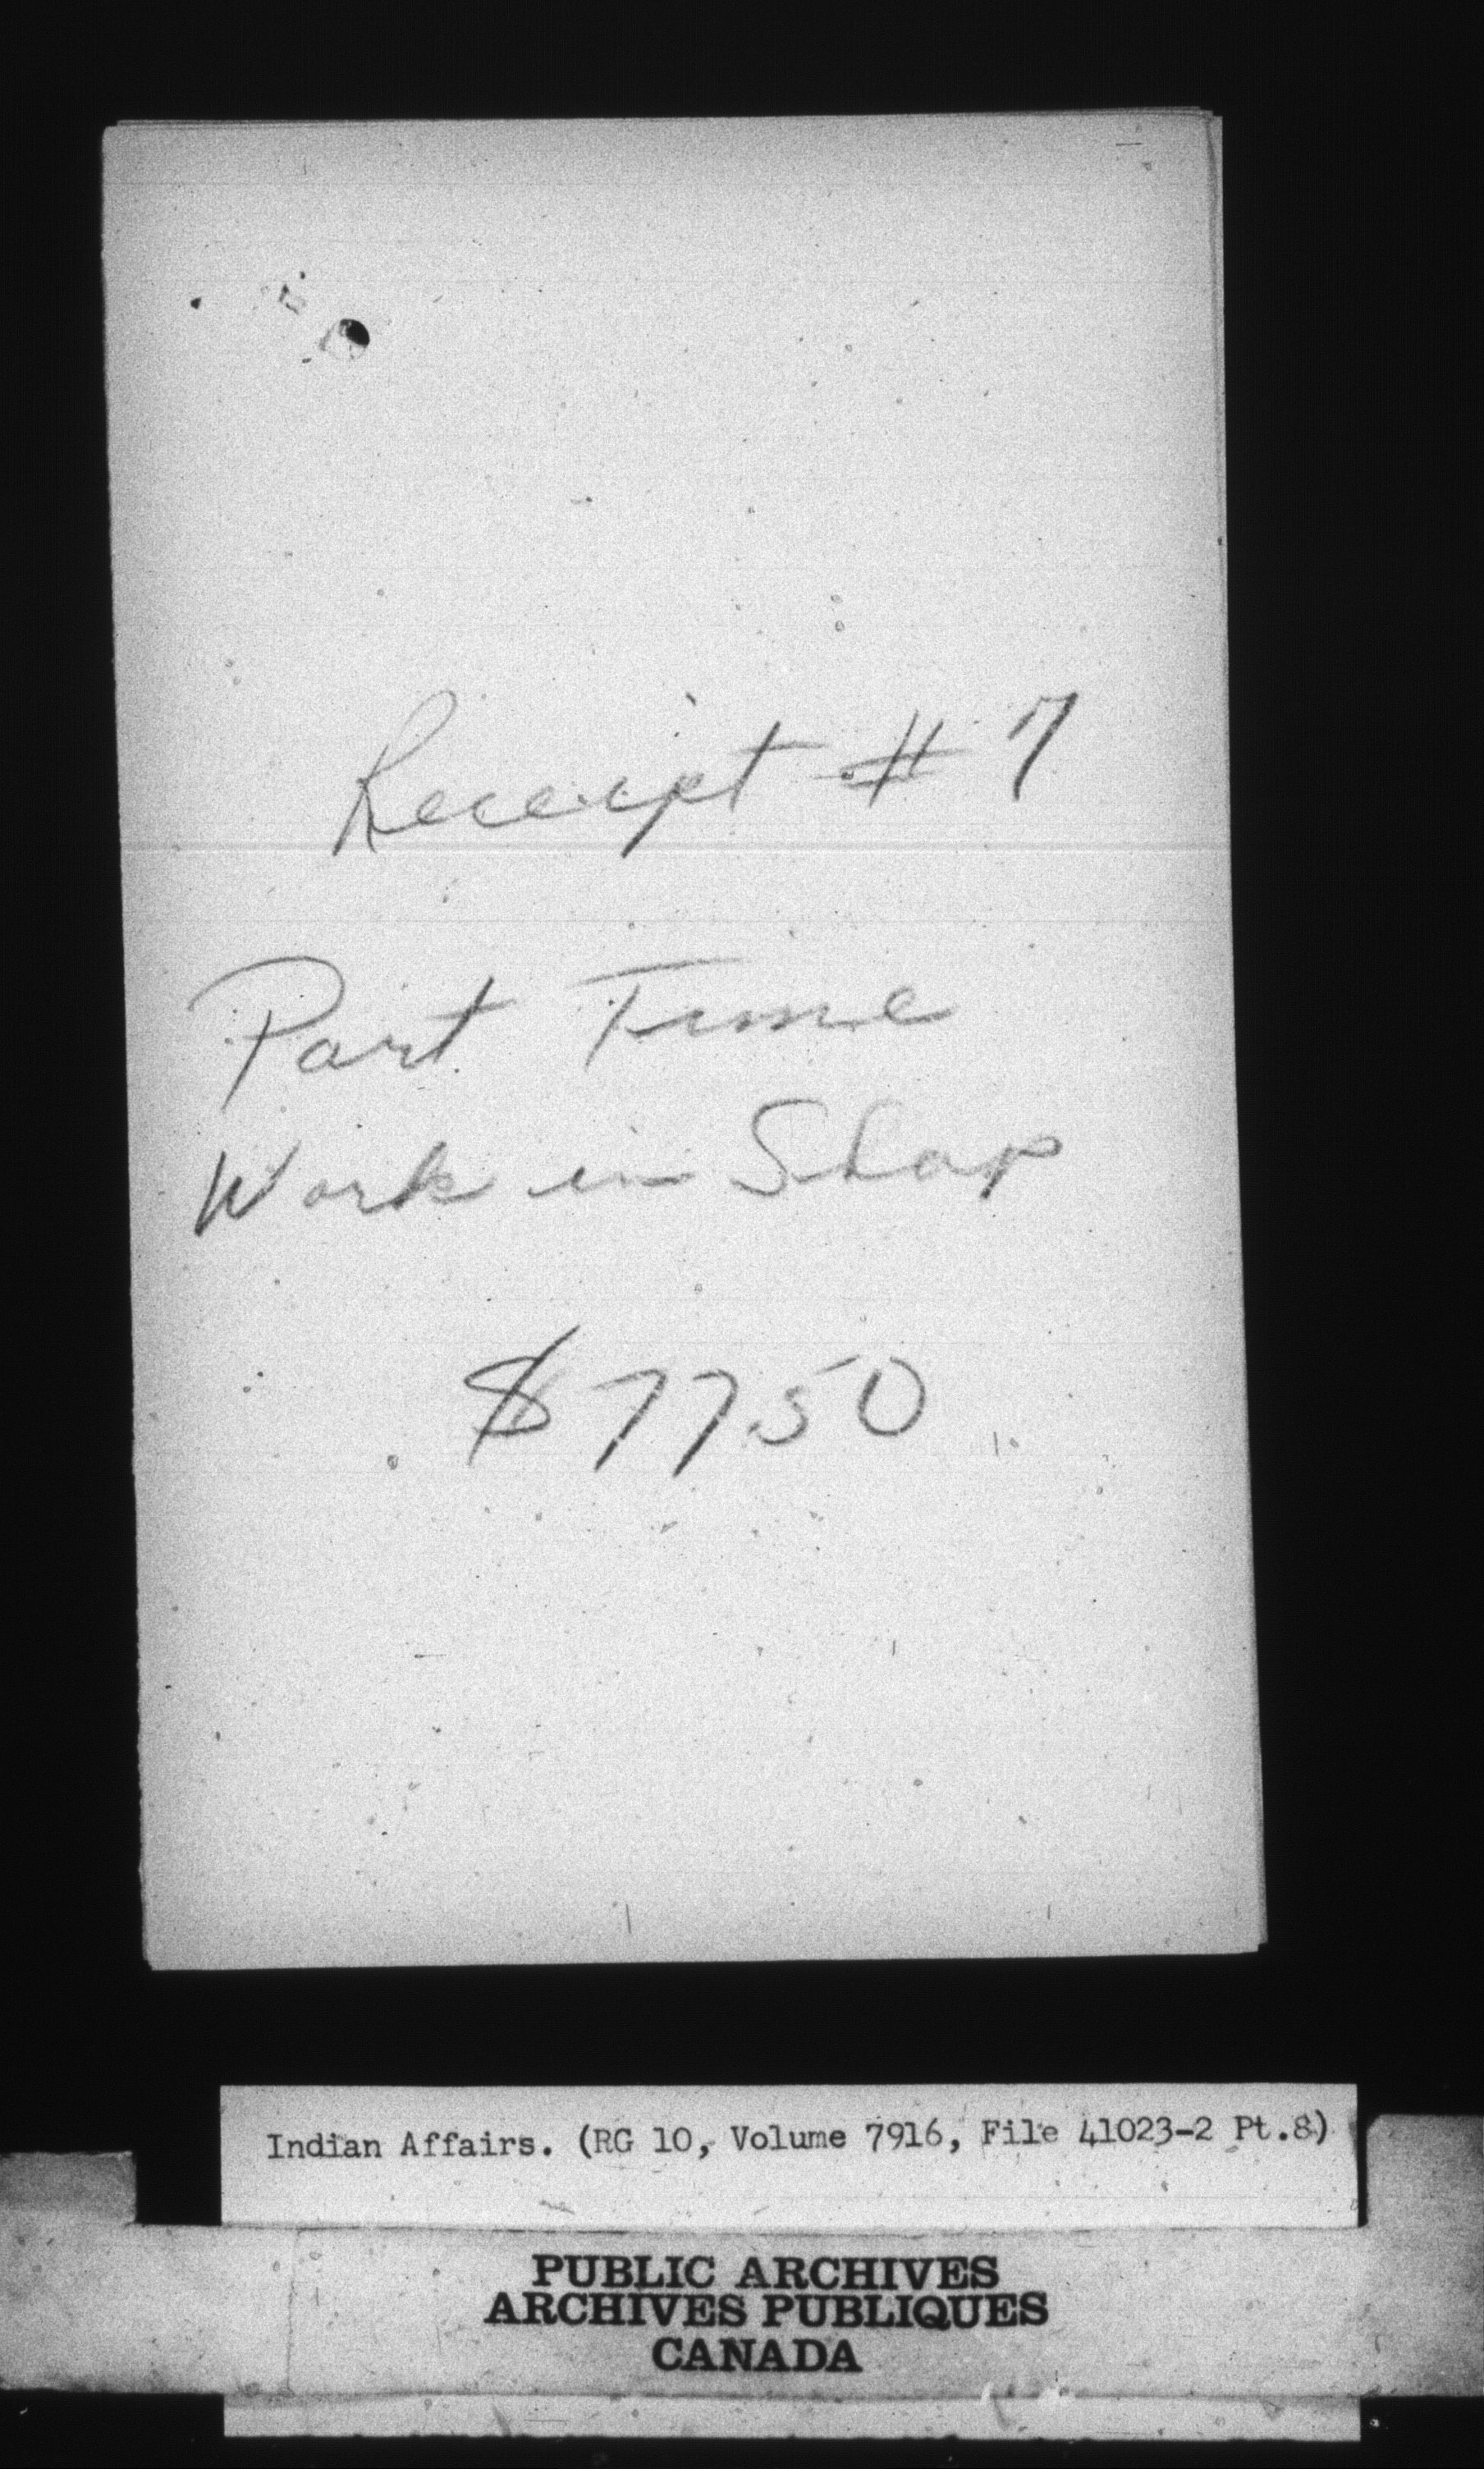 Receipt # 7
Part Time
Work in Shop
$ 7750
Indian Affairs. (RG 10, Volume 7916, File 41023-2 Pt.8)
PUBLIC ARCHIVES
ARCHIVES PUBLIQUES
CANADA